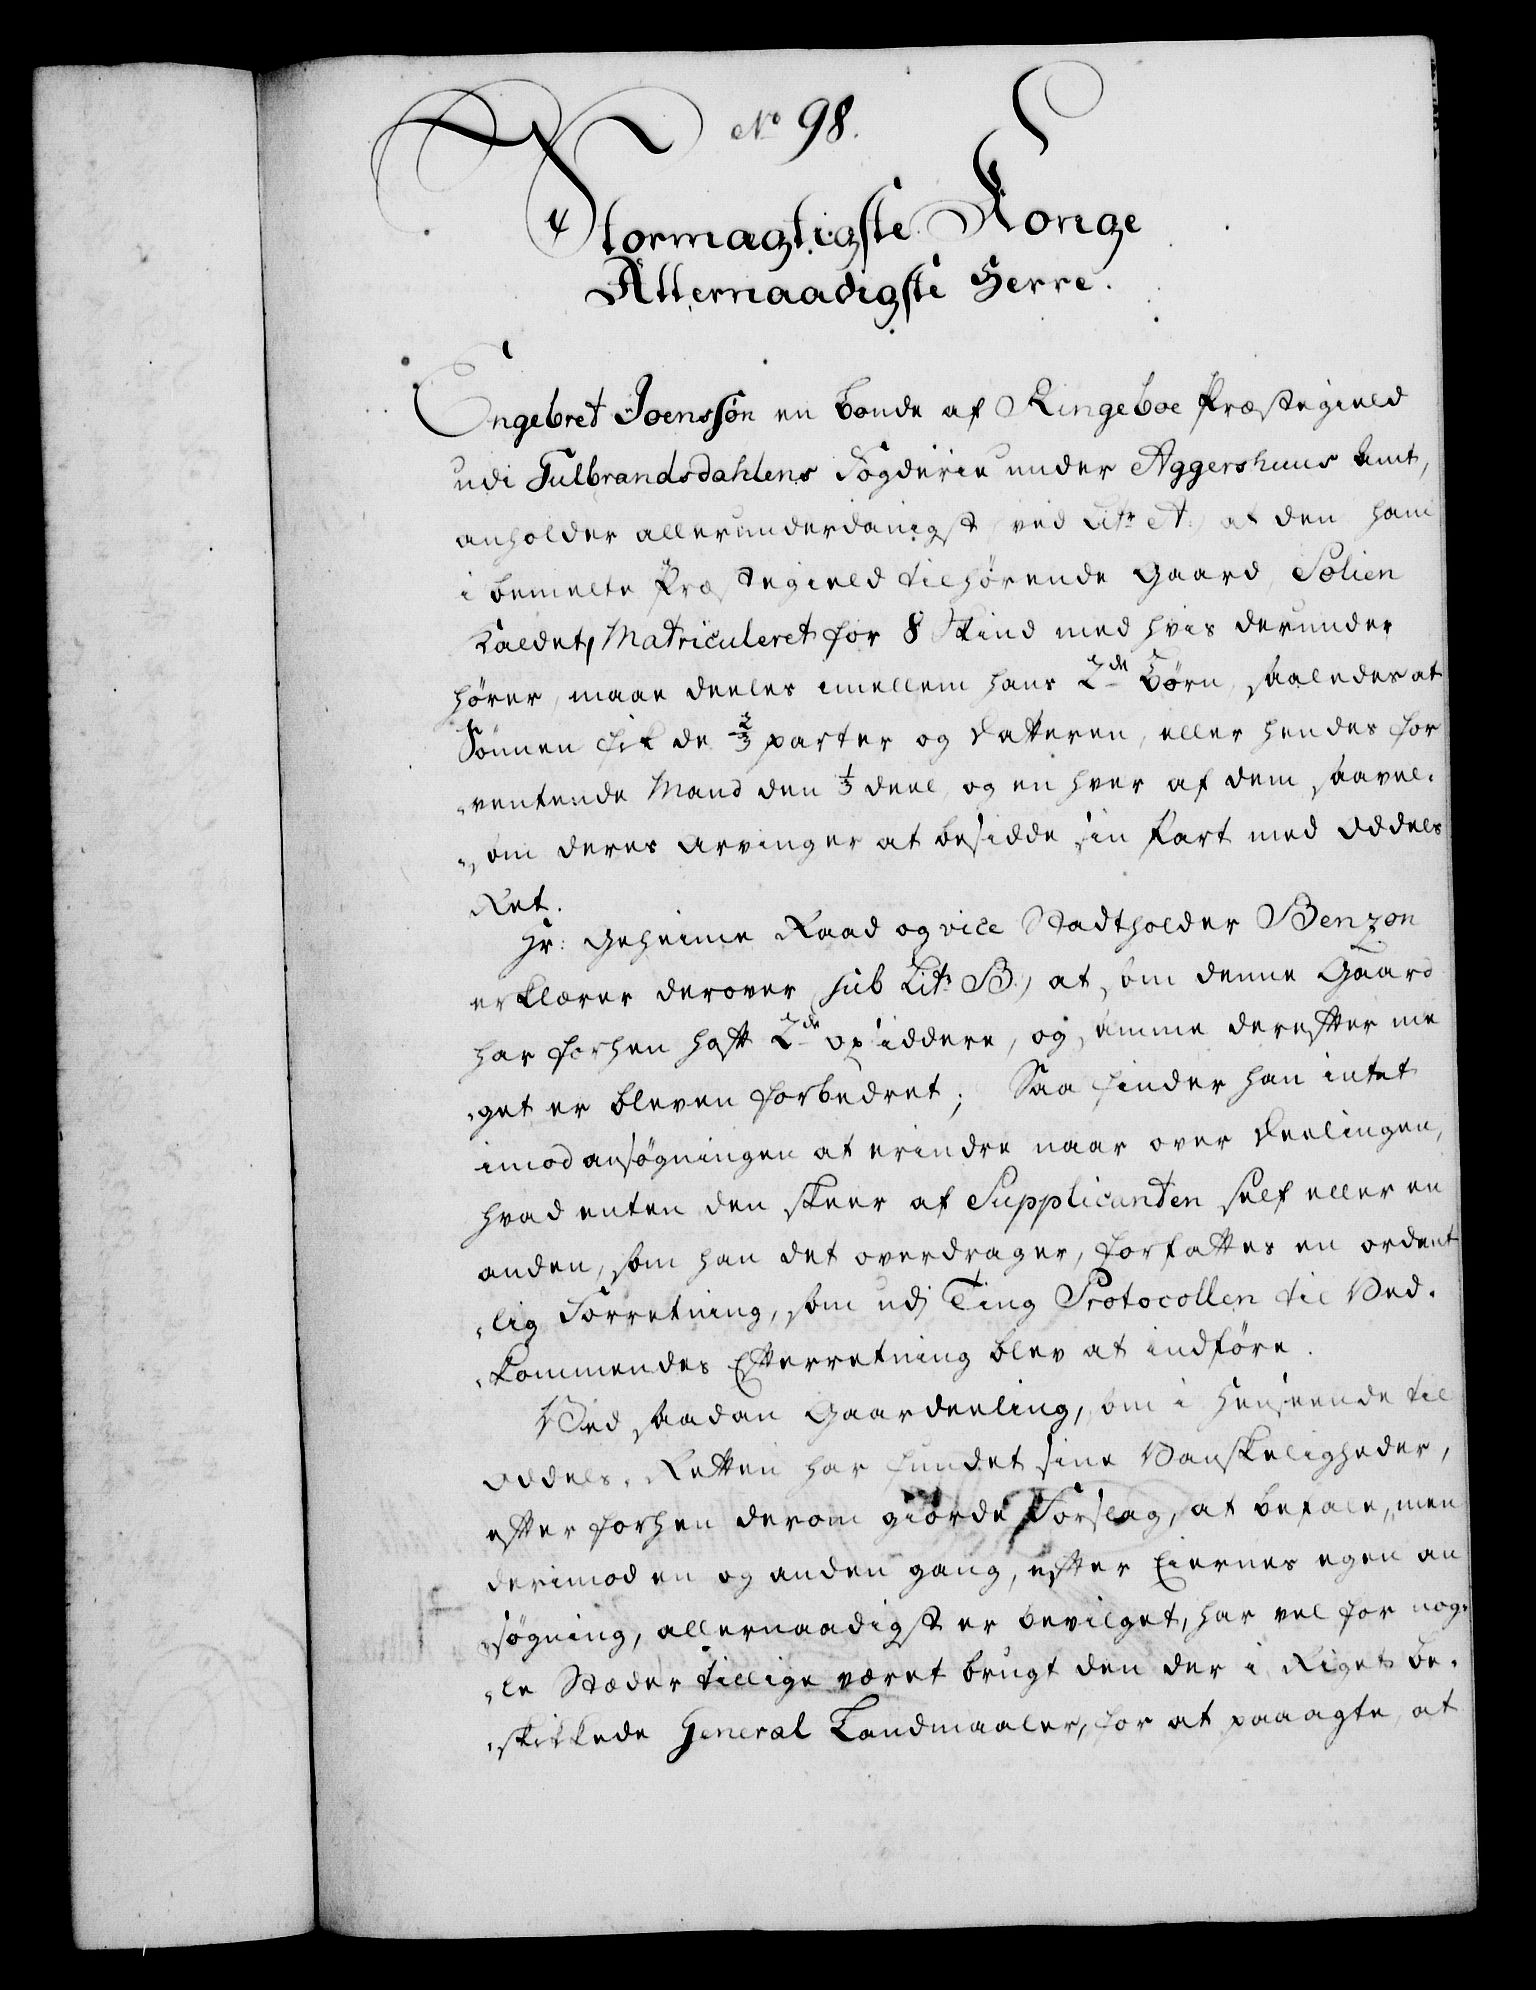 No 98.
Stormægtigste Konge
Allernaadigste Herre.
Engebret Joenssøn en bonde af Ringeboe Præstegield
udi Gulbrandsdahlens Fogderie under Aggershuus Amt,
anholder allerunderdanigst (ved Litr A.) at den ham
i bemelte Præstegield tilhørende Gaard, Solien
kaldet, Matriculeret for 8 Skind med hvis derunder
hører, maae deeles imellem hans 2de Børn, saaledes at
Sønnen fik de 2/3 parter og Datteren, eller hendes for
„ventende Mand den 1/3 deel, og en hver af dem saavel-
„som deres Arvinger at besidde sin Part med Oddels
Ret.
Hr: Geheime Raad og vice Stadtholder Benzon
erklærer derover (sub Litr B.) at som denne Gaard
har forhen haft 2de opsiddere, og samme derefter me
„get er bleven forbedret; Saa finder han intet
imod ansøgningen at erindre naar over Deelingen,
hvad enten den skeer af Supplicanten self eller en
anden, som han det overdrager, forfattes en ordent
„lig Forretning, som udj Ting Protocollen til Ved-
„kommendes Efterretning blev at indføre.
Ved saadan Gaardeeling, som i Henseende til
Oddels-Retten har fundet sine Vanskeligheder,
efter forhen derom giorde Forslag, at befale, men
derimod en og anden gang, efter Eiernes egen an
„søgning, allernaadigst er bevilget, har vel for nog-
„le Stæder tillige været brugt den der i Riget be-
„skikkede General Landmaaler, for at paaagte, at